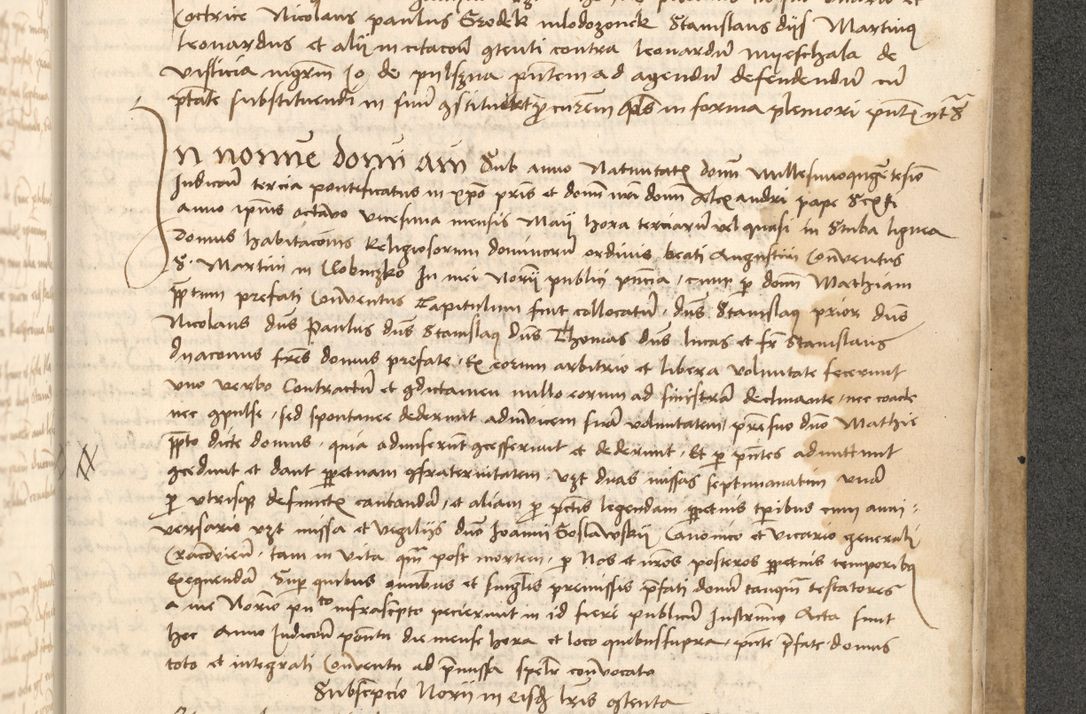 Nicolaus paulus Grodek mlodozonek Stanislaus dns Martinus
leonardus et alii in citacōn 9tenti contra leonardū myeschala de
vislicia mgrm Jo de pylsyna pntem ad agendū defendendū cū
ptate substituendi in suū 9stituerūt procurem in forma pleniori
In nomīe domī amē Sub anno Natiuitatis domī Millesimoquīgētesimo
Indicciōe tercia pontificatus in xpo pris et domī nri domī Alexandri pape Sexti
anno ipius octauo vicesima mensis Maij hora terciarū vel quasi in stuba lignea
domus habitacōnis Religiosorum dominorū ordinis beati Augustini Conventus
S. Martini in In mei Norii publici pncia, cump domī Mathiam
pptum prefati Conventus Capitulum fuit collocatū, dns Stanislaus prior dns
Nicolaus dns Paulus dns Stanislaus dns Thomas dns lucas et fr Stanislaus
dyaconus frēs domus prefate, Ex eorum arbitrio et libera voluntate fecerunt
vno verbo Contractū et 9dictamen nullo eorum ad sinistrā declinante, nec coacte
nec 9pulse, sed spontanee dederunt adinvicem suā voluntatem, dno Mathie
ppto dicte domus, quia admiserunt 9cesserunt et dederunt, Et p pntes admittunt
9cedunt et dant ppetuam 9fraternitatem, vzt duas missas septimanatim vnā
p defunctis cantandā, et aliam p pctis legendam ppetuis tpibus cum anni-
versario vzt missa et vigilijs dno Joanni Goslawskij Canonico et vicario generali
Cracovien, tam in vita quā post mortem, p Nos et nros posteros ppetuis temporibus
Exequendā Sup quibus omībus et singlis premissis pfati domī tanquā testatores
a me Norio pu^co infrascpto pecierunt in id fieri publicū Instrumē Acta sunt
hec Anno Indicciōe die mense hora et loco quibussupra, pnte pfate domus
toto et integrali Conventu ad pmissa splr convocato
Subscpcio Norii in eisdē lris 9tenta